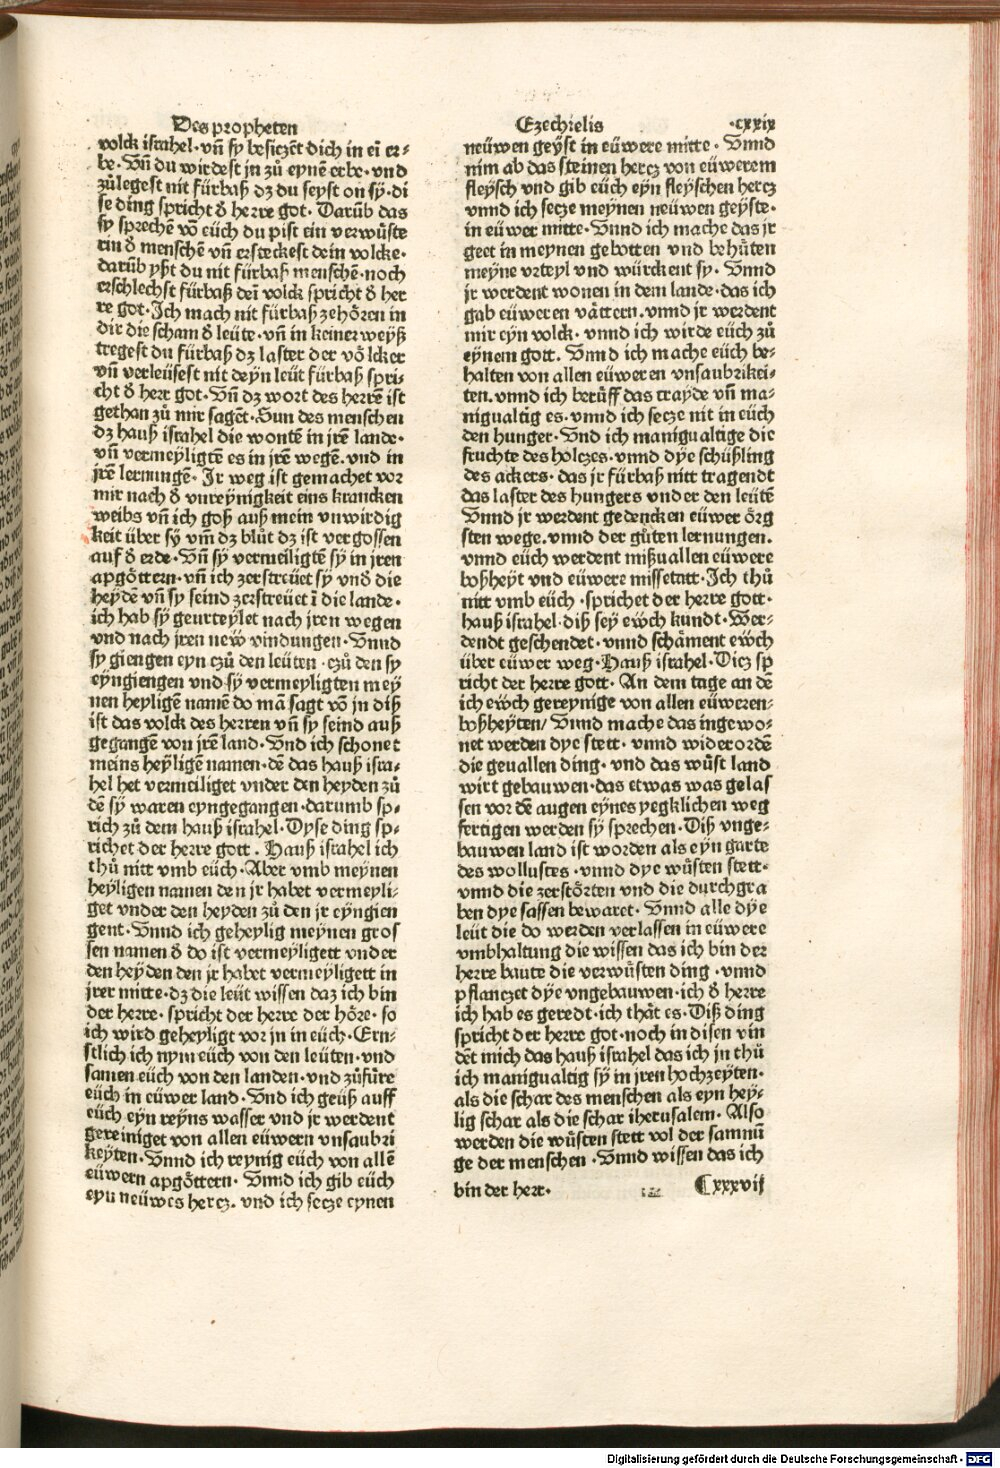 Des propheten
volck israhel· vñ sy besiczēt dich in ei er⸗
be· Vñ du wirdest jn zů eynē erbe· vnd
zůlegest nit fürbaß dz du seyst on sÿ· di
se ding spricht ď herre got· Darūb das
sy sprechē vō eüch du pist ein verwůste
rin ď menschē vñ ersteckest dein volcke·
darūb yßt du nit fürbaß menschē· noch
erschlechst fürbaß deī volck spricht ď her
re got· Ich mach nit fürbaß zehören in
dir die scham ď leüte· vñ in keiner weyß
tregest du fürbaß dz laster der völcker
vñ verleüsest nit deyn leüt fürbaß spri⸗
cht ď herr got· Vñ dz wort des herrē ist
gethan zů mir sagēt· Sun des menschen
dz hauß israhel die wontē in jrē lande·
vñ vermeyligtē es in jrē wegē. vnd in
jrē lernungē· Jr weg ist gemachet vor
mir nach ď vnreynigkeit eins krancken
weibs vñ ich goß auß mein vnwirdig
keit über sÿ vm̄ dz blůt dz ist vergossen
auf ď erde· Vñ sÿ vermeiligtē sÿ in jren
apgöttern· vñ ich zerstreüet sÿ vnď die
heydē vñ sy seind zerstreüet ī die lande·
ich hab sÿ geurteylet nach jren wegen
vnd nach jren new̋ vindungen· Vnnd
sy giengen eyn czů den leüten· czů den sy
eyngiengen vnd sÿ vermeyligten mey
nen heyligē namē do mā sagt vō jn diß
ist das volck des herren vñ sy seind auß
gegangē von jrē land· Vnd ich schonet
meins heyligē namen· dē das hauß isra⸗
hel het vermeiliget vnder den heyden zů
dē sÿ waren eyngegangen· darumb sp⸗
rich zů dem hauß israhel· Dyse ding sp⸗
richet der herre gott. Hauß israhel ich
thů nitt vmb eüch· Aber vmb meynen
heyligen namen den jr habet vermeyli⸗
get vnder den heyden zů den jr eyngien
gent· Vnnd ich geheylig meynen gros
sen namen ď do ist vermeyligett vnder
den heyden den jr habet vermeyligett in
jrer mitte· dz die leüt wissen daz ich bin
der herre· spricht der herre der höre· so
ich wird geheyligt vor jn in eüch· Ern⸗
stlich ich nym eüch von den leüten· vnd
samen eüch von den landen· vnd zůfüre
eüch in eüwer land· Vnd ich geüß auff
eüch eyn reyns wasser vnd jr werdent
gereiniget von allen eüwern vnsaubri
keyten· Vnnd ich reynig eüch von allē
eüwern apgöttern· Vnnd ich gib eüch
eyn neüwes hercz. vnd ich secze eynen
Ezechielis ·cxxix
neüwen geyst in eüwere mitte· Vnnd
nim ab das steinen hercz von eüwerem
fleysch vnd gib eüch eyn fleyschen hercz
vnnd ich secze meynen neüwen geyste·
in eüwer mitte· Vnnd ich mache das jr
geet in meynen gebotten vnd behůten
meyne vrteyl vnd würckent sy· Vnnd
jr werdent wonen in dem lande· das ich
gab eüweren vättern. vnnd jr werdent
mir eyn volck· vnnd ich wirde eüch zů
eynem gott. Vnnd ich mache eüch be⸗
halten von allen eüweren vnsaubrikei⸗
ten. vnnd ich berüff das trayde vñ ma⸗
nigualtig es· vnnd ich secze nit in eüch
den hunger· Vnd ich manigualtige die
fruchte des holczes· vnnd dye schüßling
des ackers· das jr fürbaß nitt tragendt
das laster des hungers vnder den leütē
Vnnd jr werdent gedencken eüwer örg
sten wege. vnnd der gůten lernungen.
vnnd eüch werdent mißuallen eüwere
boßheyt vnd eüwere missetatt· Ich thů
nitt vmb eüch· sprichet der herre gott·
hauß israhel· diß sey ew̋ch kundt· Wer⸗
dendt geschendet· vnnd schāment ew̋ch
über eüwer weg· Hauß israhel· Dicz sp
richt der herre gott· An dem tage an dē
ich ew̋ch gereynige von allen eüweren⸗
boßheyten/ Vnnd mache das ingewo⸗
net werden dye stett· vnnd widerordē
die geuallen ding· vnd das wůst land
wirt gebauwen· das etwas was gelas
sen vor dē augen eynes yegklichen weg
fertigen werden sÿ sprechen· Diß vnge⸗
bauwen land ist worden als eyn garte
des wollustes· vnnd dye wůsten stett·
vnnd die zerstörten vnd die durchgra
ben dye sassen bewaret· Vnnd alle dÿe
leüt die do werden verlassen in eüwere
vmbhaltung die wissen das ich bin der
herre baute die verwůsten ding· vnnd
pflanczet dye vngebauwen· ich ď herre
ich hab es geredt· ich thät es· Diß ding
spricht der herre got· noch in disen vin
dēt mich das hauß israhel das ich jn thů
ich manigualtig sÿ in jren hochzeyten·
als die schar des menschen als eyn hey⸗
lig schar als die schar iherusalem· Also
werden die wůsten stett vol der samnū
ge der menschen· Vnnd wissen das ich
bin der herr· Cxxxvij
Digitalisierung gefördert durch die Deutsche Forschungsgemeinschaft - DFG